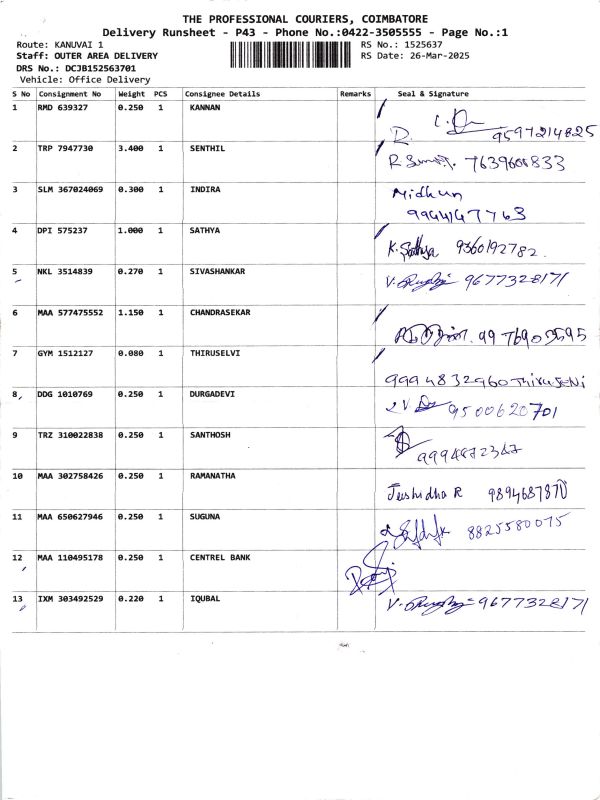 THE PROFESSIONAL COURIERS, COIMBATORE
Delivery Runsheet - P43 - Phone No.:0422-3505555 - Page No.:1
Route: KANUVAI 1 RS No.: 1525637
Staff: OUTER AREA DELIVERY RS Date: 26-Mar-2025
DRS No.: DCJB152563701
Vehicle: Office Delivery
S No Consignment No Weight PCS Consignee Details Remarks Seal & Signature
1 RMD 639327 0.250 1 KANNAN
9597214825
2 TRP 7947730 3.400 1 SENTHIL
3 SLM 367024069 0.300 1 INDIRA Midhun
9944147763
4 DPI 575237 1.000 1 SATHYA
K. Sathya 9360192782
5 NKL 3514839 0.270 1 SIVASHANKAR
9677328171
6 MAA 577475552 1.150 1 CHANDRASEKAR
7 GYM 1512127 0.080 1 THIRUSELVI
9994832960
8 DDG 1010769 0.250 1 DURGADEVI
9500620701
9 TRZ 310022838 0.250 1 SANTHOSH
10 MAA 302758426 0.250 1 RAMANATHA
9894687870
11 MAA 650627946 0.250 1 SUGUNA
8825580075
12 MAA 110495178 0.250 1 CENTREL BANK
13 IXM 303492529 0.220 1 IQUBAL
9677328171